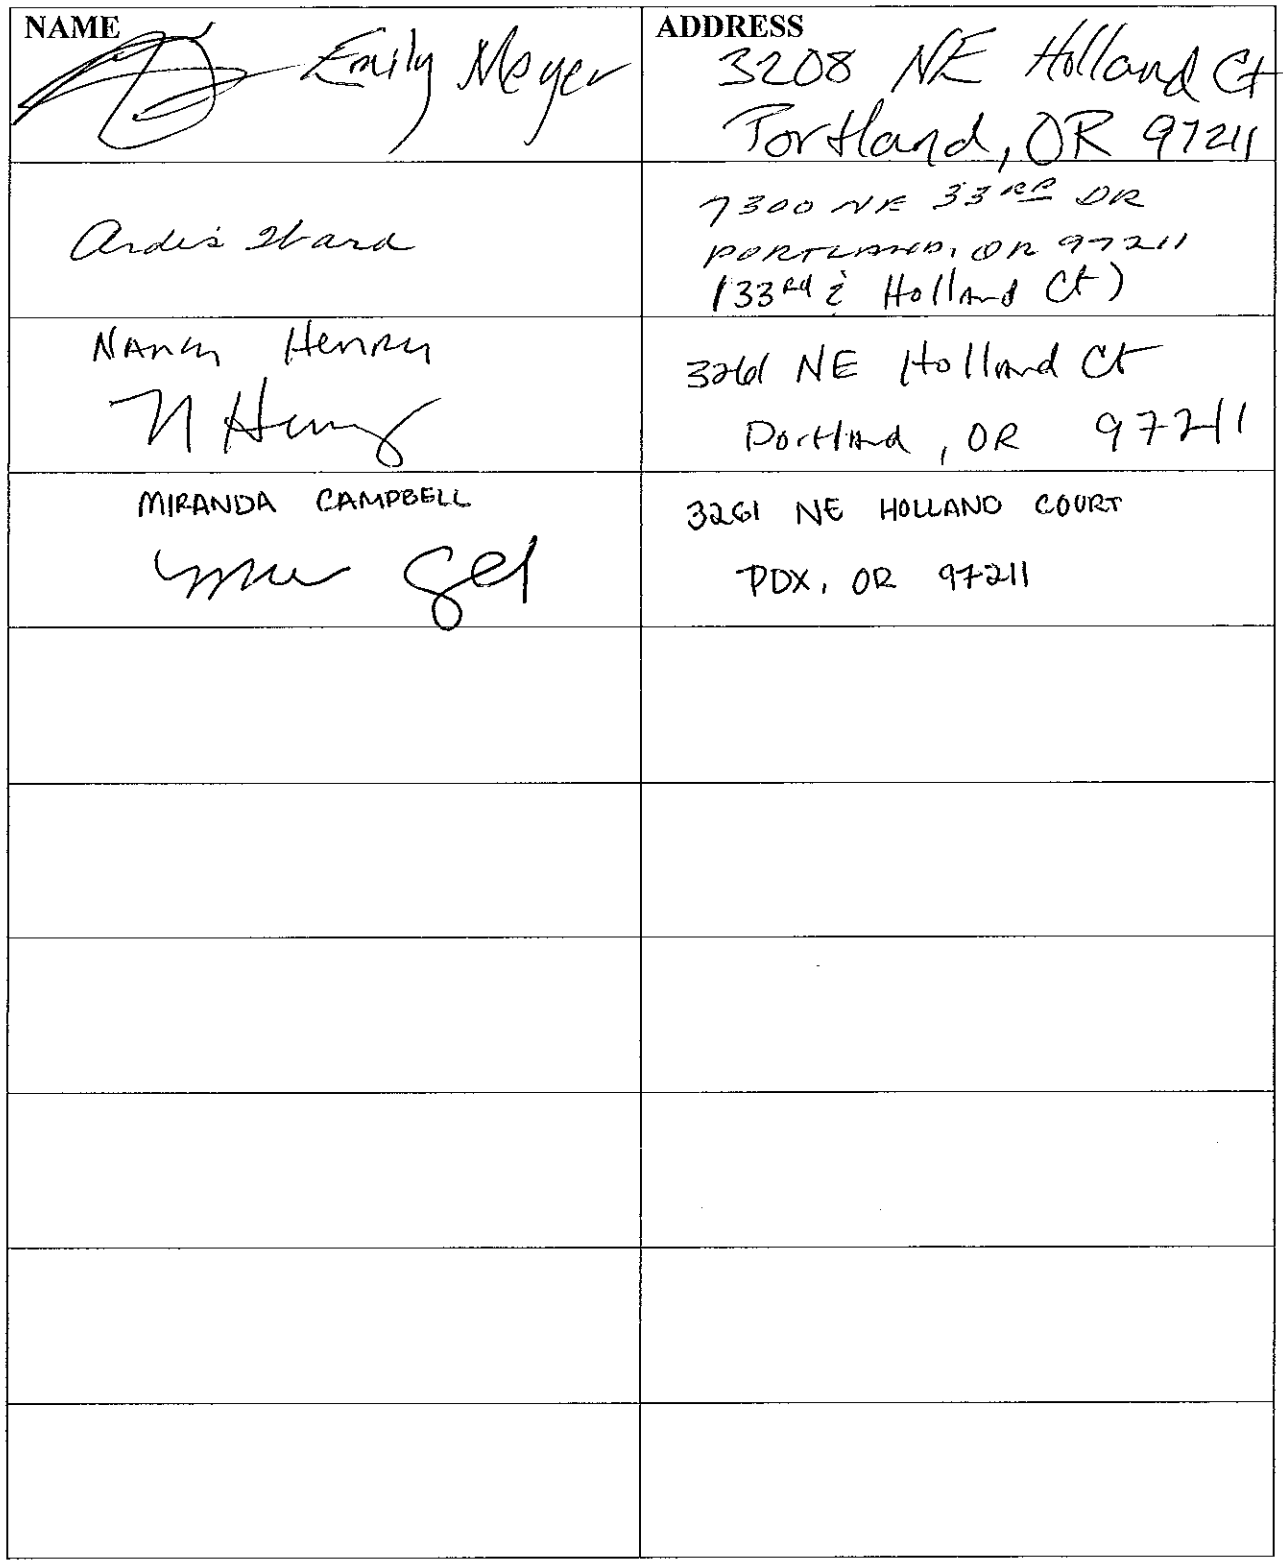 NAME
ADDRESS
Emily Meyer
3208 NE Holland Ct
Portland, OR 97211
Ardis Ward
7300 NE 33RD DR
PORTLAND, OR 97211
(33rd & Holland Ct)
Nancy Henry
N Henry
3261 NE Holland Ct
Portland, OR 97211
MIRANDA CAMPBELL
3261 NE HOLLAND COURT
PDX, OR 97211